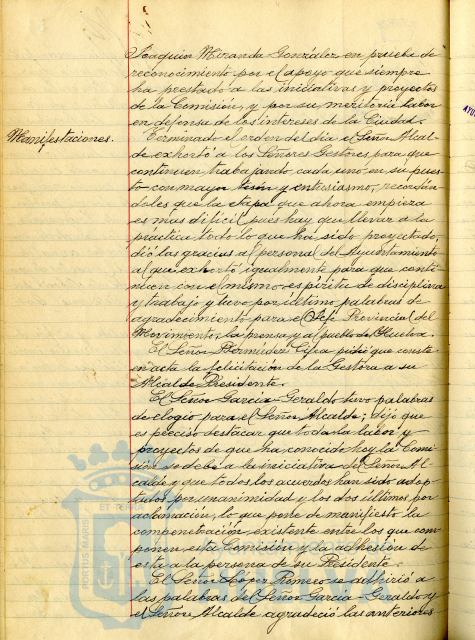 Joaquin Miranda Gonzalez en prueba de
reconocimiento por el apoyo que siempre
ha prestado a las iniciativas y proyectos
de la Comisión, y por su meritoria labor
en defensa de los intereses de la Ciudad.
Manifestaciones.
Terminado el orden del día el Señor Alcal-
de exhortó a los Señores Gestores para que
continuen trabajando cada uno en su pues-
to con mayor tesón y entusiasmo, recordan-
doles que la etapa que ahora empieza
es mas dificil pues hay que llevar a la
práctica todo lo que ha sido proyectado,
dió las gracias al personal del Ayuntamiento
al que exhortó igualmente para que conti-
nuen con el mismo espiritu de disciplina
y trabajo y tuvo por último palabras de
agradecimiento para el Jefe Provincial del
Movimiento, la prensa y al pueblo de Huelva.
El Señor Bermudez Cifra pidió que conste
en acta la felicitación de la Gestora a su
Alcalde Presidente.
El Señor Garcia-Geraldo tuvo palabras
de elogio para el Señor Alcalde; dijo que
es preciso destacar que toda la labor y
proyectos de que ha conocido hoy la Comi-
sión se debe a la iniciativa del Señor Al-
calde y que todos los acuerdos han sido adop-
tados por unanimidad y los dos ultimos por
aclamación, lo que pone de manifiesto la
compenetración existente entre los que com-
ponen esta Comisión y la adhesión de
esta a la persona de su Presidente.
El Señor López Romero se adhirió a
las palabras del Señor Garcia-Geraldo y
el Señor Alcalde agradeció las anteriores
PORTUS MARIS
ET TERRÆ